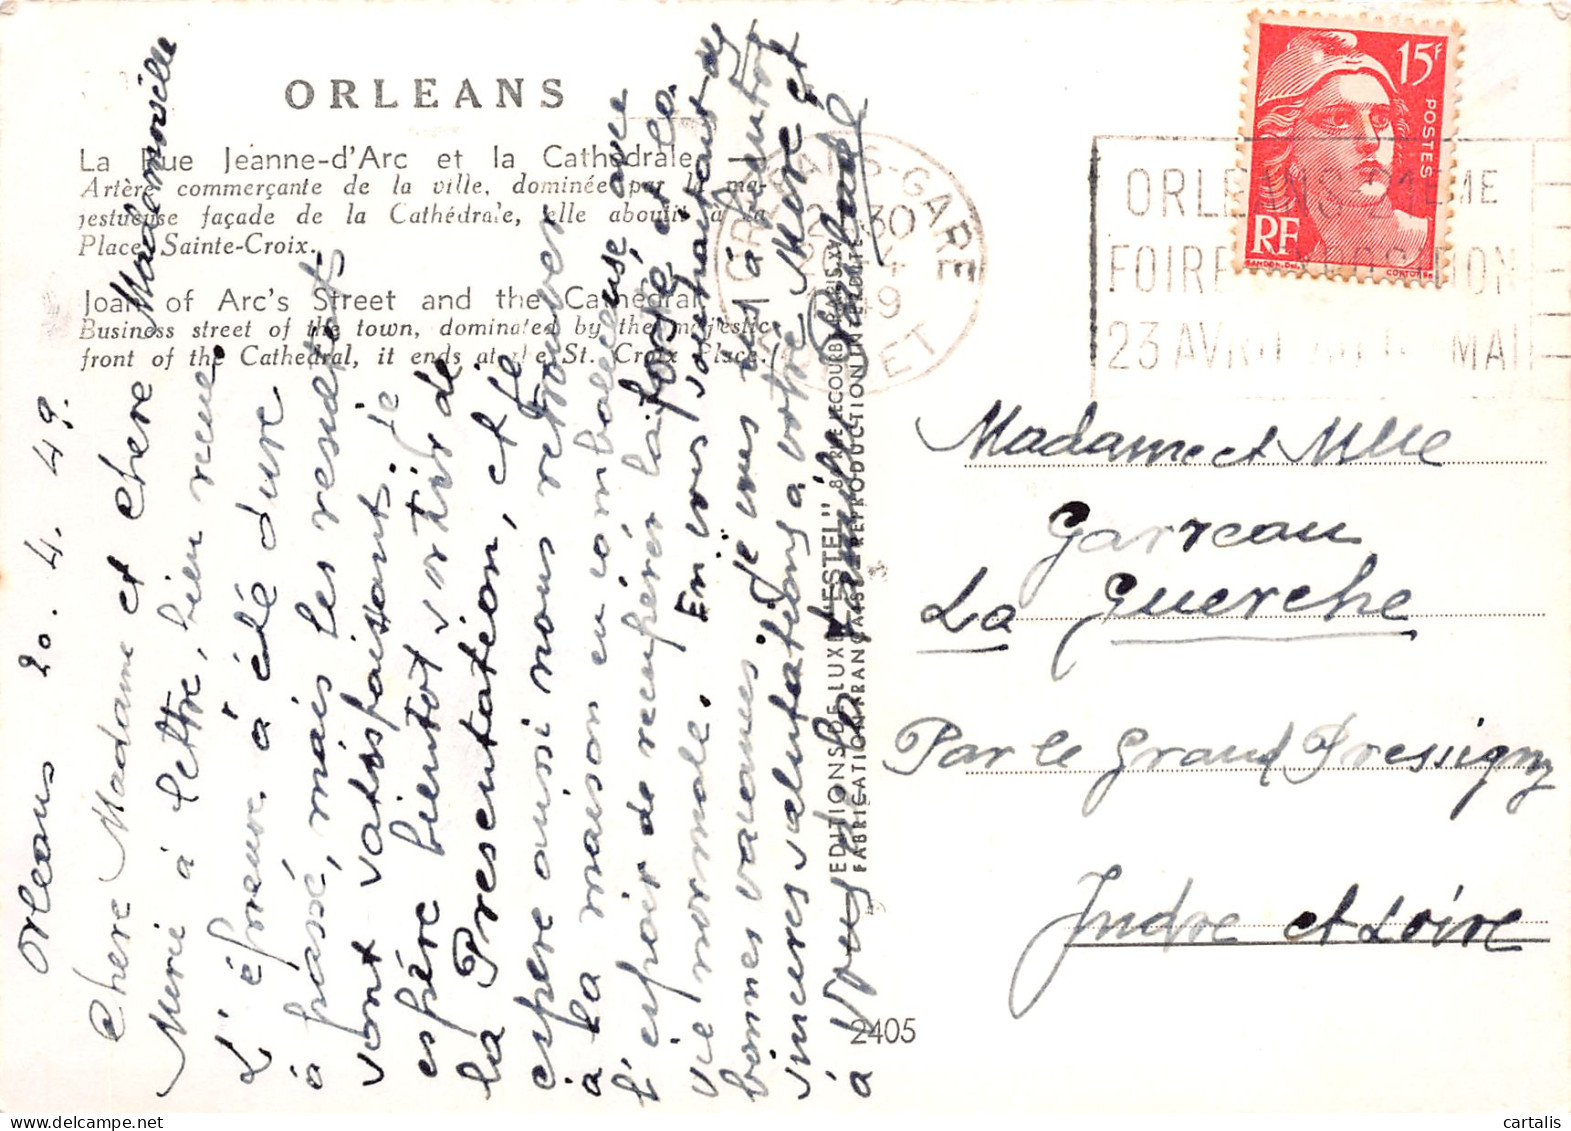 ORLEANS
La Rue Jeanne-d'Arc et la Cathédrale
Artère commerçante de la ville, dominée par la ma-
jestueuse façade de la Cathédrale, elle aboutit à la
Place Sainte-Croix.
Joan of Arc's Street and the Cathedral
Business street of the town, dominated by the majestic
front of the Cathedral, it ends at the St. Croix Place.
Orleans 20. 4. 49.
Chere Madame et chere Mademoiselle
Merci à lettre, bien reçue
L'épreuve à été dure
à passé, mais les resultats
sont satisfaisants. Je
espére bientot sortir de
la Presentation, et je
espere aussi nous retrouver
à la maison en combaleceuse avec
l'espoir de recupérer la force et la
vie normale. En vous souhaitant de
bonnes vacances. Je vous
sinceres salutations a votre Mere et
à de la famille
EDITIONS DE LUXE "ESTEL"
FABRICATION FRANÇAISE REPRODUCTION INTERDITE
2405
15F
POSTES
RF
ORLEANS-GARE
LOIRET
ORLEANS 21EME
FOIRE EXPOSITION
23 AVRIL MAI
Madame et Mlle
Garreau
La Guerche
Par le Grand Pressigny
Indre et Loire
cartalis